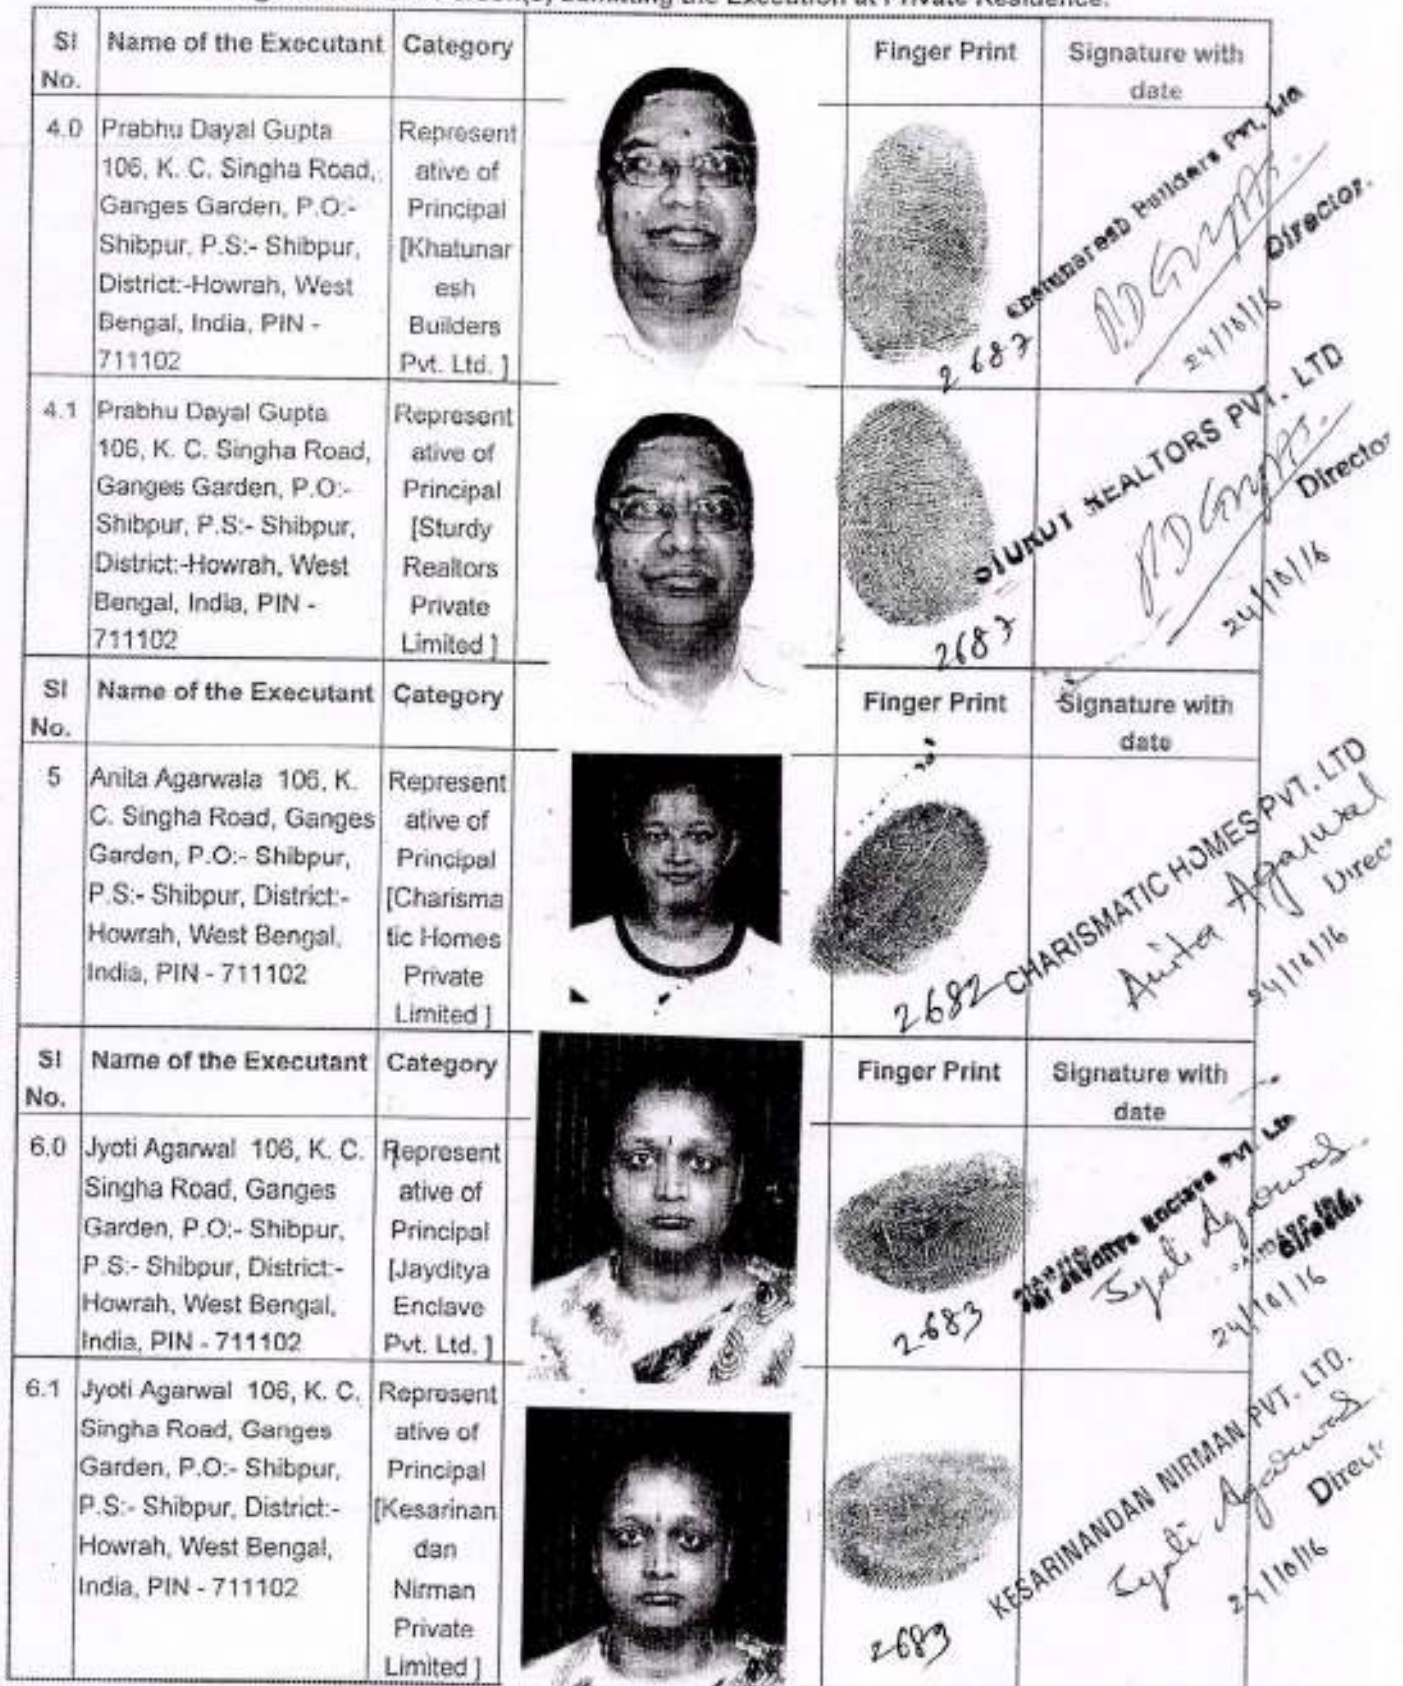 Person(s) admitting the Execution at Private Residence.
Sl No.
Name of the Executant
Category
Finger Print
Signature with date
4.0
Prabhu Dayal Gupta
106, K. C. Singha Road,
Ganges Garden, P.O:-
Shibpur, P.S:- Shibpur,
District:-Howrah, West
Bengal, India, PIN -
711102
Represent
ative of
Principal
[Khatunar
esh
Builders
Pvt. Ltd. ]
2687
Builders Pvt. Ltd
P.D Gupta.
Director.
24/10/16
4.1
Prabhu Dayal Gupta
106, K. C. Singha Road,
Ganges Garden, P.O:-
Shibpur, P.S:- Shibpur,
District:-Howrah, West
Bengal, India, PIN -
711102
Represent
ative of
Principal
[Sturdy
Realtors
Private
Limited ]
2687
REALTORS PVT. LTD
P.D Gupta.
Director
24/10/16
Sl No.
Name of the Executant
Category
Finger Print
Signature with date
5
Anita Agarwala 106, K.
C. Singha Road, Ganges
Garden, P.O:- Shibpur,
P.S:- Shibpur, District:-
Howrah, West Bengal,
India, PIN - 711102
Represent
ative of
Principal
[Charisma
tic Homes
Private
Limited ]
2682
CHARISMATIC HOMES PVT. LTD
Anita Agarwal
Direc
24/10/16
Sl No.
Name of the Executant
Category
Finger Print
Signature with date
6.0
Jyoti Agarwal 106, K. C.
Singha Road, Ganges
Garden, P.O:- Shibpur,
P.S:- Shibpur, District:-
Howrah, West Bengal,
India, PIN - 711102
Represent
ative of
Principal
[Jayditya
Enclave
Pvt. Ltd. ]
2683
Enclave Pvt. Ltd
Jyoti Agarwal.
Director
24/10/16
6.1
Jyoti Agarwal 106, K. C.
Singha Road, Ganges
Garden, P.O:- Shibpur,
P.S:- Shibpur, District:-
Howrah, West Bengal,
India, PIN - 711102
Represent
ative of
Principal
[Kesarinan
dan
Nirman
Private
Limited ]
2683
KESARINANDAN NIRMAN PVT. LTD.
Jyoti Agarwal
Direc
24/10/16